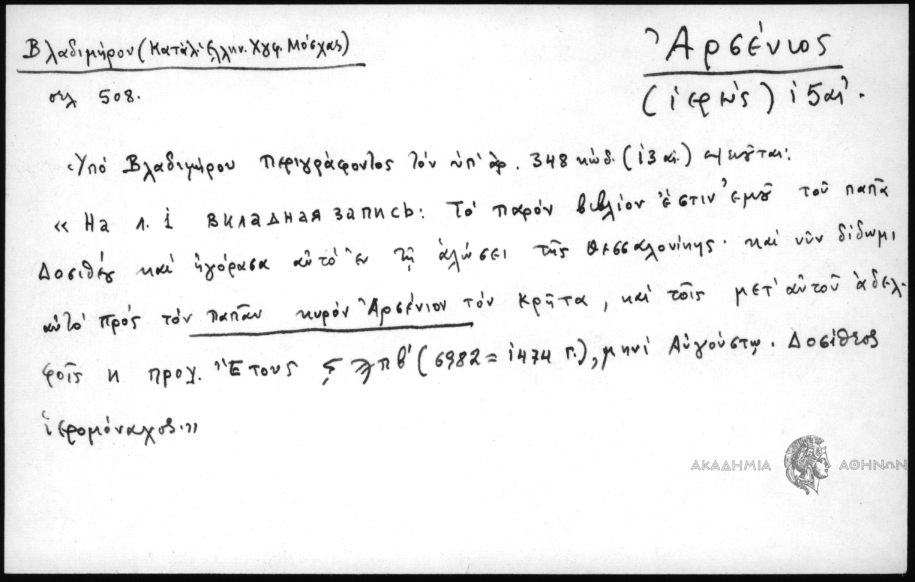 Βλαδιμήρου (Κατάλ. Ἑλλην. Χγφ. Μόσχας)
σελ 508.
Ἀρσένιος
(ἱερεὺς) ι5 αἰ.
Ὑπό Βλαδιμήρου περιγράφοντος τὸν ὑπ' ἀρ. 348 κώδ. (ι3 αἰ.)
« На л. 1 вкладная запись: Τὸ παρόν βιβλίον ἐστὶν ἐμοῦ τοῦ παπᾶ
Δοσιθέου καὶ ἠγόρασα αὐτὸ ἐν τῇ ἁλώσει τῆς Θεσσαλονίκης· καὶ νῦν δίδωμι
αὐτὸ πρὸς τὸν παπᾶν κυρὸν Ἀρσένιον τὸν Κρῆτα, καὶ τοῖς μετ' αὐτοῦ ἀδελ-
φοῖς и проч. Ἔτους ϛϡπβ' (6982 = 1474 г.), μηνὶ Αὐγούστῳ. Δοσίθεος
ἱερομόναχος.»
ΑΚΑΔΗΜΙΑ ΑΘΗΝΩΝ